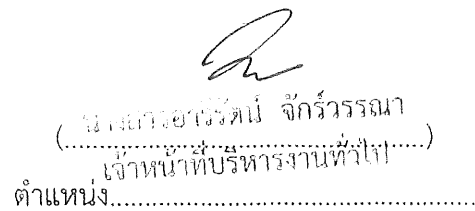 (นางสาวอารีรัตน์ จักร์วรรณา)
เจ้าหน้าที่บริหารงานทั่วไป
ตำแหน่ง